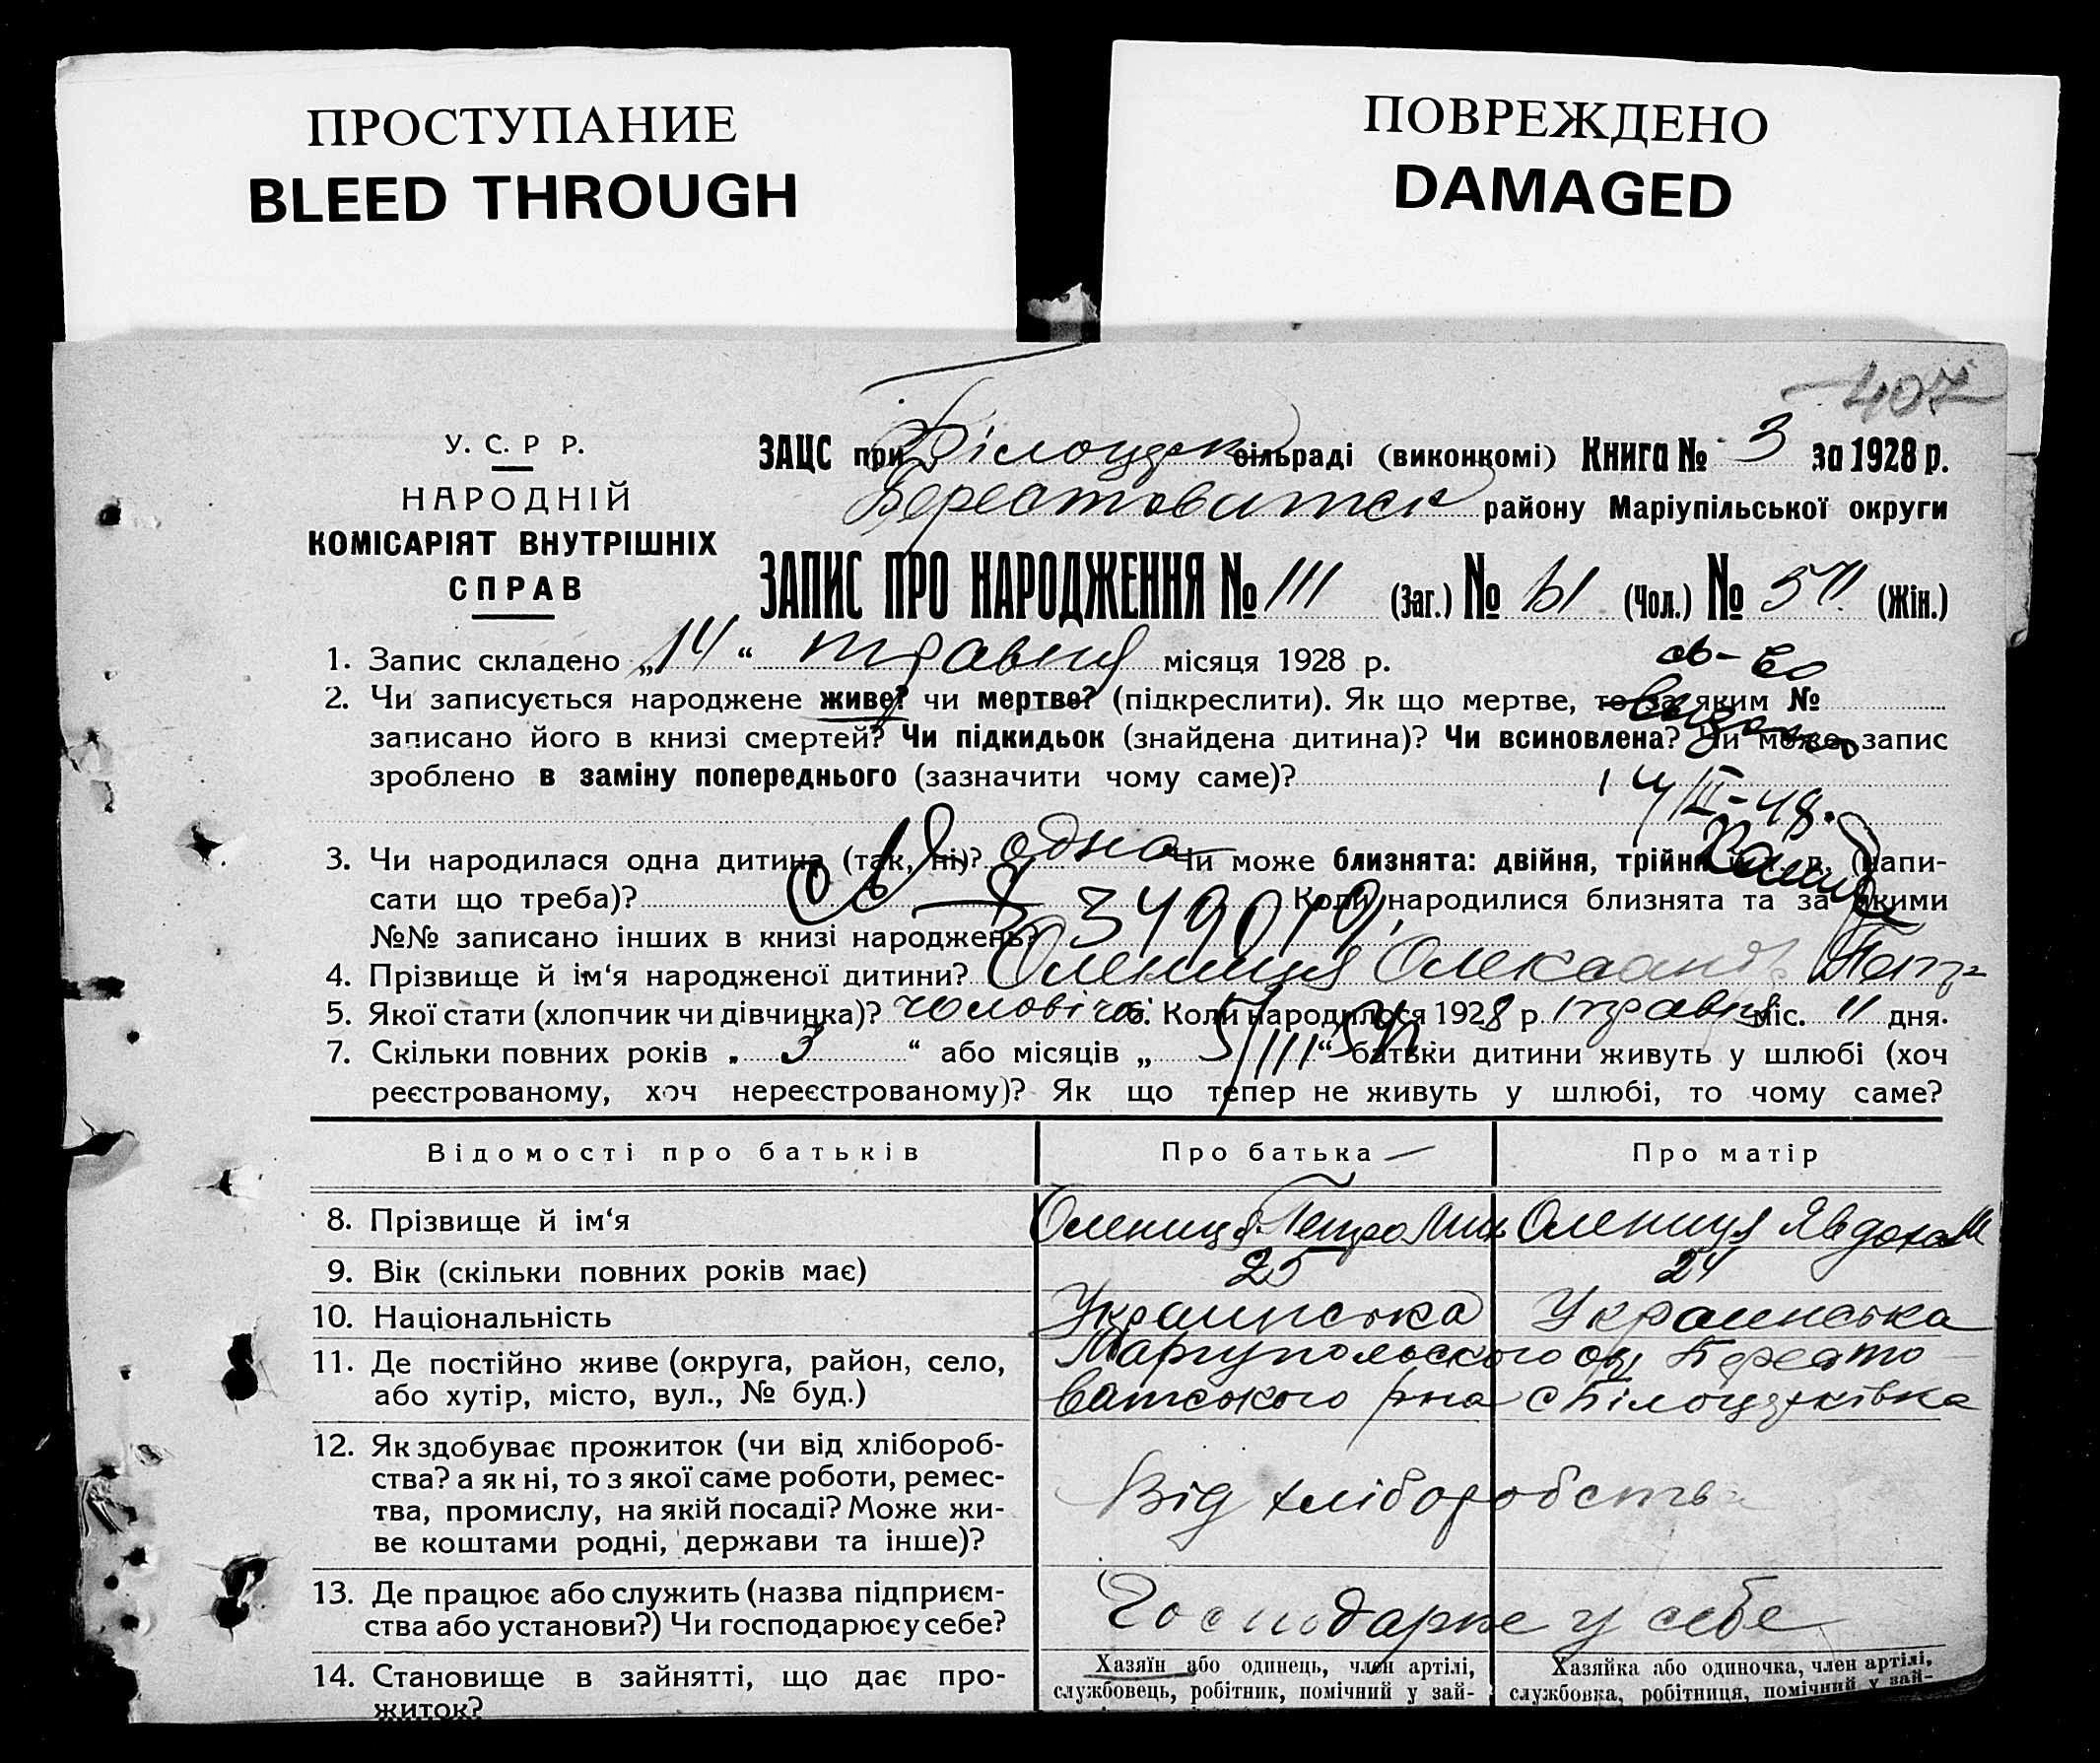 ПРОСТУПАНИЕ
BLEED THROUGH
ПОВРЕЖДЕНО
DAMAGED
407
У. С. Р Р.
НАРОДНІЙ
КОМІСАРІЯТ ВНУТРІШНІХ
СПРАВ
ЗАЦС при Білоцерк сільраді (виконкомі) Книга № 3 за 1928 р.
Берестоватск району Маріупільської округи
ЗАПИС ПРО НАРОДЖЕННЯ № 111 (Заг.) № 61 (Чол.) № (Жін.)
1. Запис складено „14“ травня місяця 1928 р.
св-во
2. Чи записується народжене живе? чи мертве? (підкреслити). Як що мертве, то за яким №
видано
записано його в книзі смертей? Чи підкидьок (знайдена дитина)? Чи всиновлена? Чи може запис
зроблено в заміну попереднього (зазначити чому саме)?
3. Чи народилася одна дитина (так, ні)? одна Чи може близнята: двійня, трійня и т. д. (напи-
сати що треба)? Коли народилися близнята та за якими
№№ записано інших в книзі народжень? 349019
4. Прізвище й ім‘я народженої дитини? Олениця Олександр Петр
5. Якої стати (хлопчик чи дівчинка)? чоловічої 6. Коли народилося 1928 р. травня міс. 11 дня.
7. Скільки повних років „ 3 “ або місяців „ “ батьки дитини живуть у шлюбі (хоч
реєстрованому, хоч нереєстрованому)? Як що тепер не живуть у шлюбі, то чому саме?
Відомості про батьків Про батька Про матір
8. Прізвище й ім‘я Олениця Петро Мих Олениця Явдоха М
9. Вік (скільки повних років має) 25 24
10. Національність Украинська Украинська
11. Де постійно живе (округа, район, село, Маріупольського окр Берестo
або хутір, місто, вул., № буд.) ватського рна с Білоцерківка
12. Як здобуває прожиток (чи від хлібороб-
ства? а як ні, то з якої саме роботи, ремес-
тва, промислу, на якій посаді? Може жи-
ве коштами родні, держави та інше)?
Від хліборобства
13. Де працює або служить (назва підприєм-
ства або установи?) Чи господарює у себе?
Господарює у себе
14. Становище в зайнятті, що дає про-
житок?
Хазяїн або одинець, член артілі,
службовець, робітник, помічний у зай-
Хазяйка або одиночка, член артілі,
службовка, робітниця, помічний у зай-